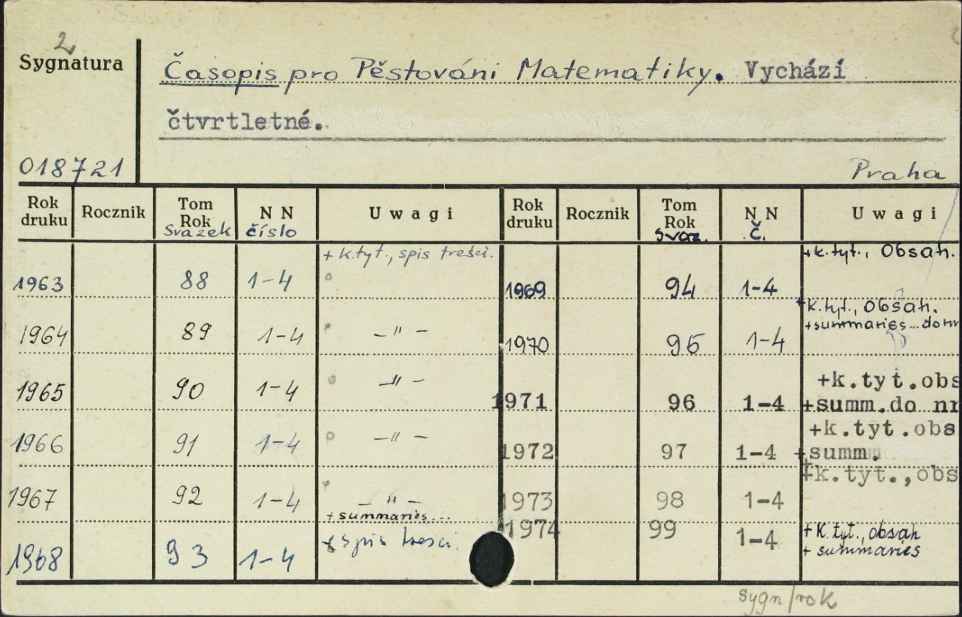 2
Sygnatura
Časopis pro Pěstováni Matematiky. Vychází
čtvrtletné.
018721
Praha
Rok druku Rocznik Tom Rok Svazek N N číslo Uwagi Rok druku Rocznik Tom Rok Svaz. N N Č. Uwagi
+ k.tyt., spis treści. +k.tyt., Obsah.
1963 88 1-4 1969 94 1-4
+k.tyt., Obsah.
1964 89 1-4 – " – +summaries...do nr
1970 95 1-4
+k.tyt.obs
1965 90 1-4 – " – 1971 96 1-4 +summ.do nr
+k.tyt.obs
1966 91 1-4 – " – 1972 97 1-4 +summ.
+k.tyt.,obs
1967 92 1-4 – " – 1973 98 1-4
+ summaries... 1974 99 1-4 + k.tyt., obsah
1968 93 1-4 + spis treści. + summaries
sygn/rok